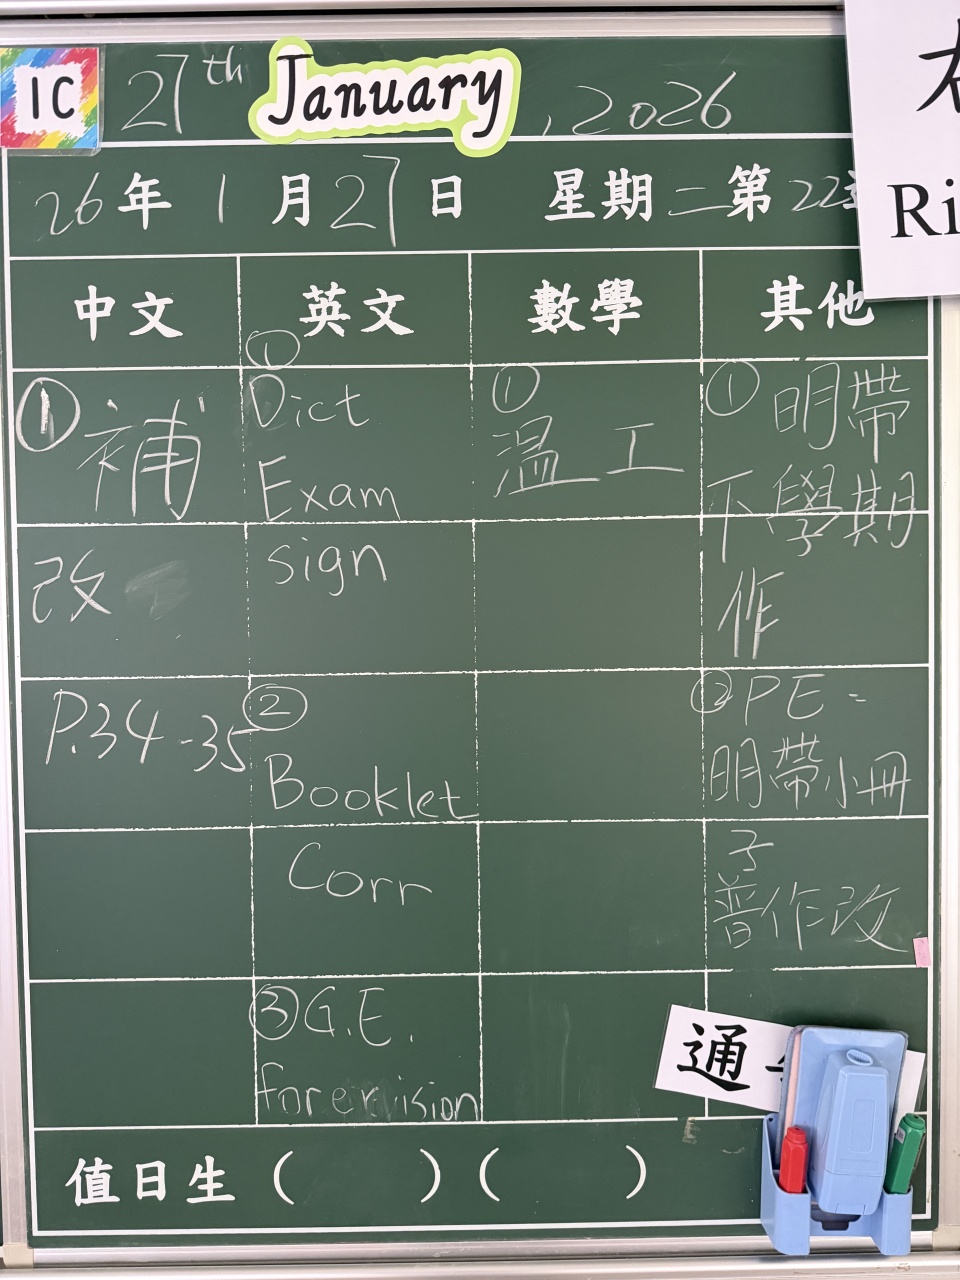 1C 27th January, 2026
26年 1月27日 星期二第22
Ri
中文 英文 數學 其他
① 補
改
P.34-35
①
Dict
Exam
sign
②
Booklet
Corr
③G.E.
① 
溫工
① 明帶
下學期
作
②PE:
明帶小冊
子
普作改
通
值日生 ( ) ( )